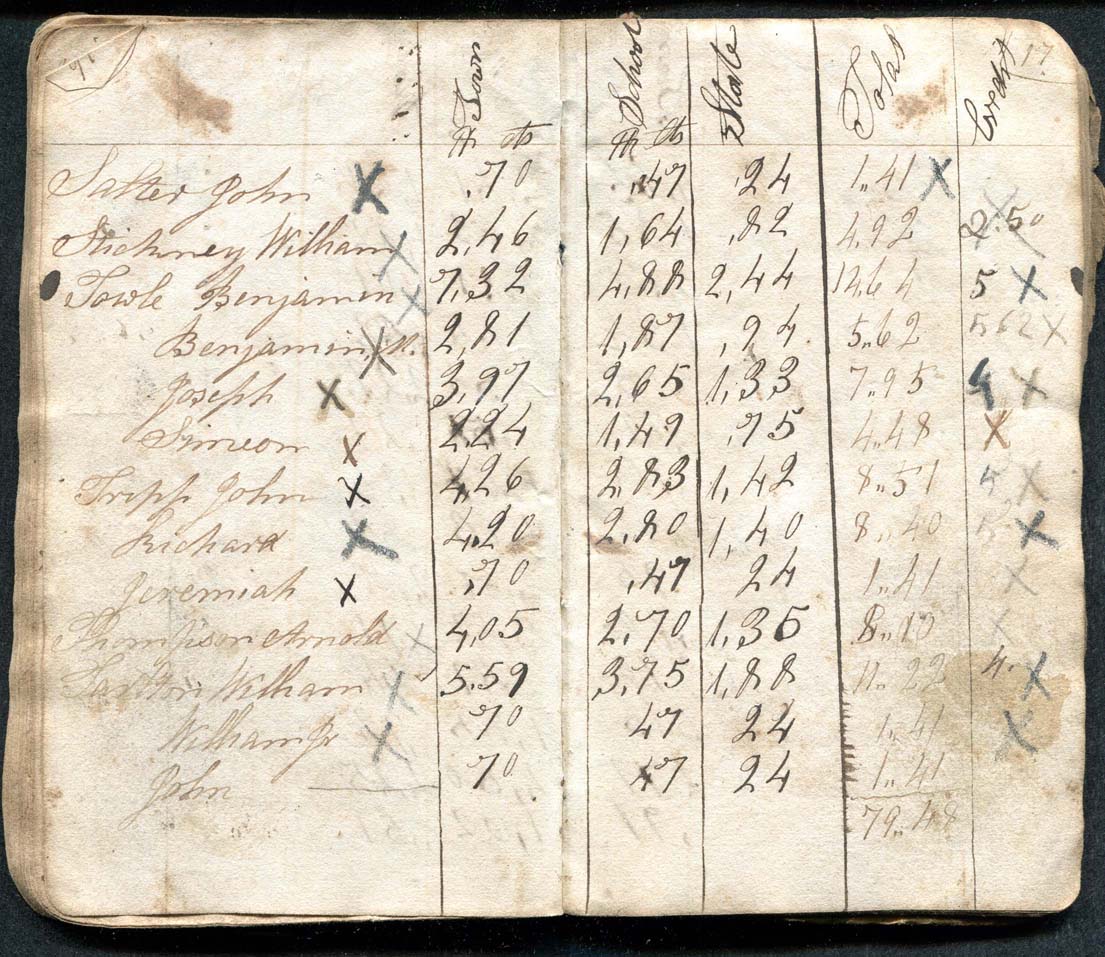 16 17
Town School State Total Credit
$ cts $ cts
Salter John X .70 .47 .24 1.41 X
Stickney William X 2,46 1,64 ,82 4,92 2.50 X
Towle Benjamin X 7,32 4,88 2,44 14,64 5 X
Benjamin X 2,81 1,87 ,94 5,,62 5,62 X
Joseph X 3,97 2,65 1,33 7,,95 4 X
Simeon X 2,24 1,49 ,75 4,,48 X
Tripp John X 4,26 2,83 1,42 8,,51 X
Richard X 4,20 2,80 1,40 8,,40 X
Jeremiah X ,70 ,47 24 1,,41 X
Thompson Arnold X 4,05 2,70 1,35 8,,10 X
William X 5,59 3,75 1,88 11,,22 4. X
William Jr X 70 47 24 1,,41 X
John 70 47 24 1,,41
79,,48